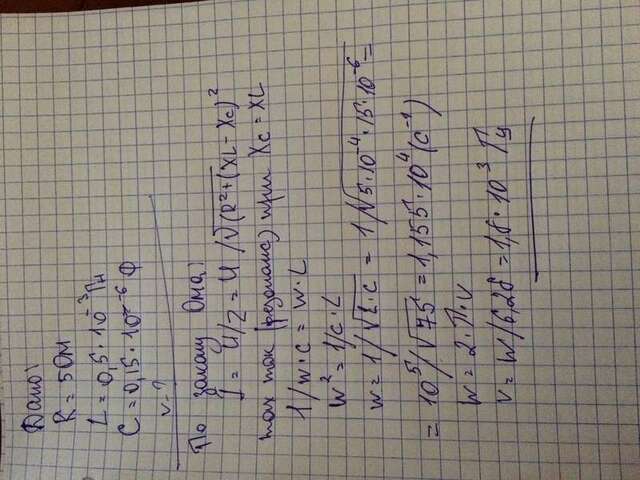 Дано:
R = 5 Ом
L = 0,5 · 10⁻³ Гн
C = 0,15 · 10⁻⁶ Ф
v - ?
По закону Ома:
I = U/Z = U/√(R²+(XL - Xc)²
max ток (резонанс) при Xc = XL
1/w·c = w·L
w² = 1/c·L
w = 1/√L·c = 1/√5·10⁻⁴·15·10⁻⁶ =
= 10⁵/√75 = 1,155·10⁴ (c⁻¹)
w = 2·П·v
v = w/6,28 = 1,8·10⁻³ Гц